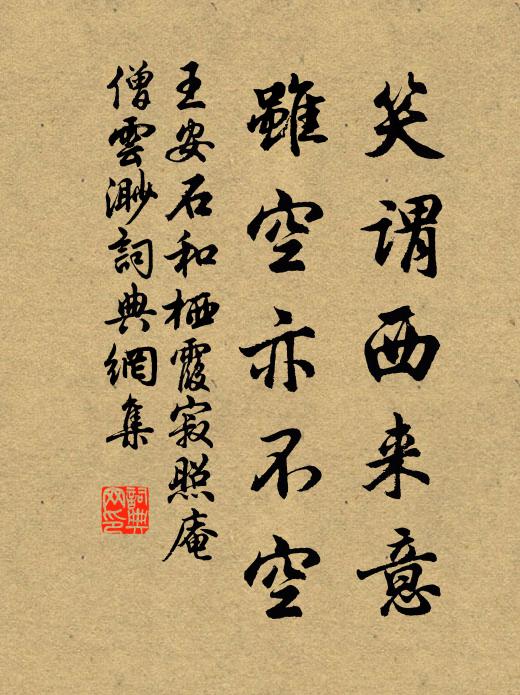 笑謂西来意
雖空亦不空
王安石和栖霞寂照庵
僧雲渺詞典網集
詞典
网印